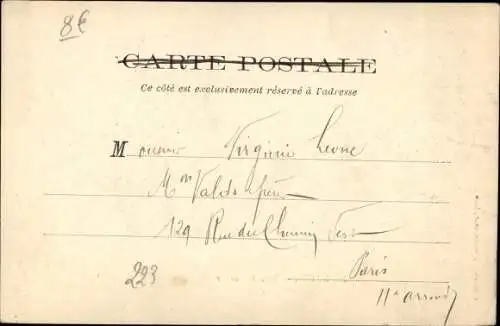 8€
CARTE POSTALE
Ce côté est exclusivement réservé à l'adresse
Monsieur Virginio Leone
Mon Valds frères
129 Rue du Chemin Vert
Paris
223
11e arrond